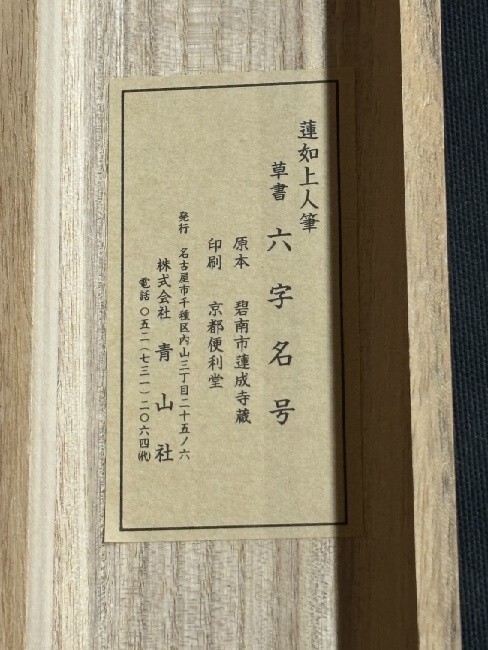 蓮如上人筆
草書 六字名号
原本 碧南市蓮成寺蔵
印刷 京都便利堂
発行 名古屋市千種区内山三丁目二十五ノ六
株式会社 青山社
電話 〇五二(七三一)二〇六四(代)